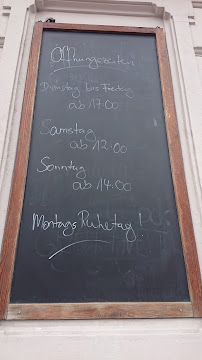 Öffnungszeiten
Dienstag bis Freitag
ab 17:00
Samstag
ab 12:00
Sonntag
ab 14:00
Montags Ruhetag!